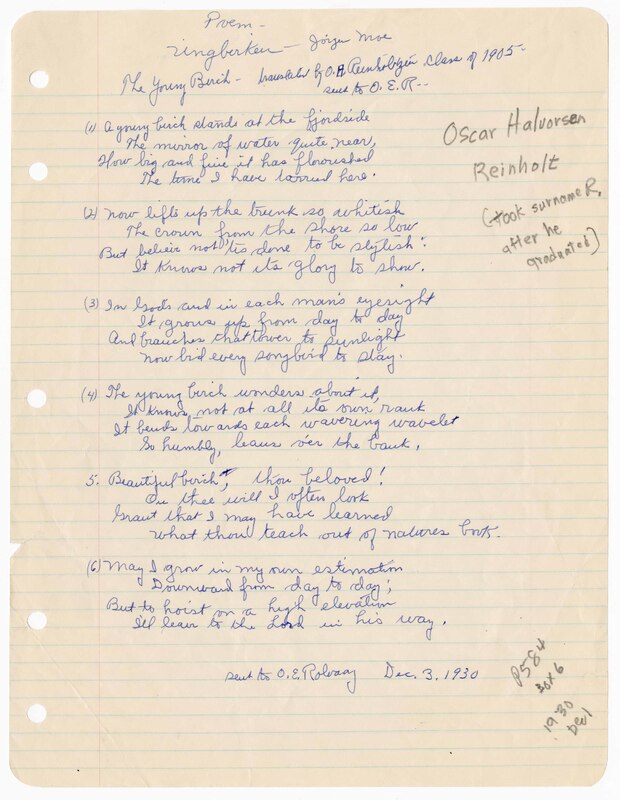 Poem -
Ungbirken - Jörgen Moe
The Young Birch - translated by O.H. Reinholt Class of 1905 -
sent to O.E.R --
(1) A young birch stands at the fjordside
The mirror of water quite near,
How big and fine it has flourished
The time I have tarried here.
(2) Now lifts up the trunk so whitish
The crown from the shore so low
But believe not 'tis done to be stylish:
It knows not its glory to show.
(3) In God's and in each man's eyesight
It grows up from day to day
And branches that tower to sunlight
Now bid every songbird to stay.
(4) The young birch wonders about it,
It knows not at all its own rank
It bends towards each wavering wavelet
So humbly, leans o'er the bank.
5. Beautiful birch, thou beloved!
On thee will I often look
Grant that I may have learned
What thou teach out of natures book.
(6) May I grow in my own estimation
Downward from day to day;
But to hoist on a high elevation
I'll leave to the Lord in his way.
sent to O.E. Rolvaag Dec. 3, 1930
Oscar Halvorsen
Reinholt
(took surname R,
after he
graduated)
P584
Box 6
1930
Dec 1